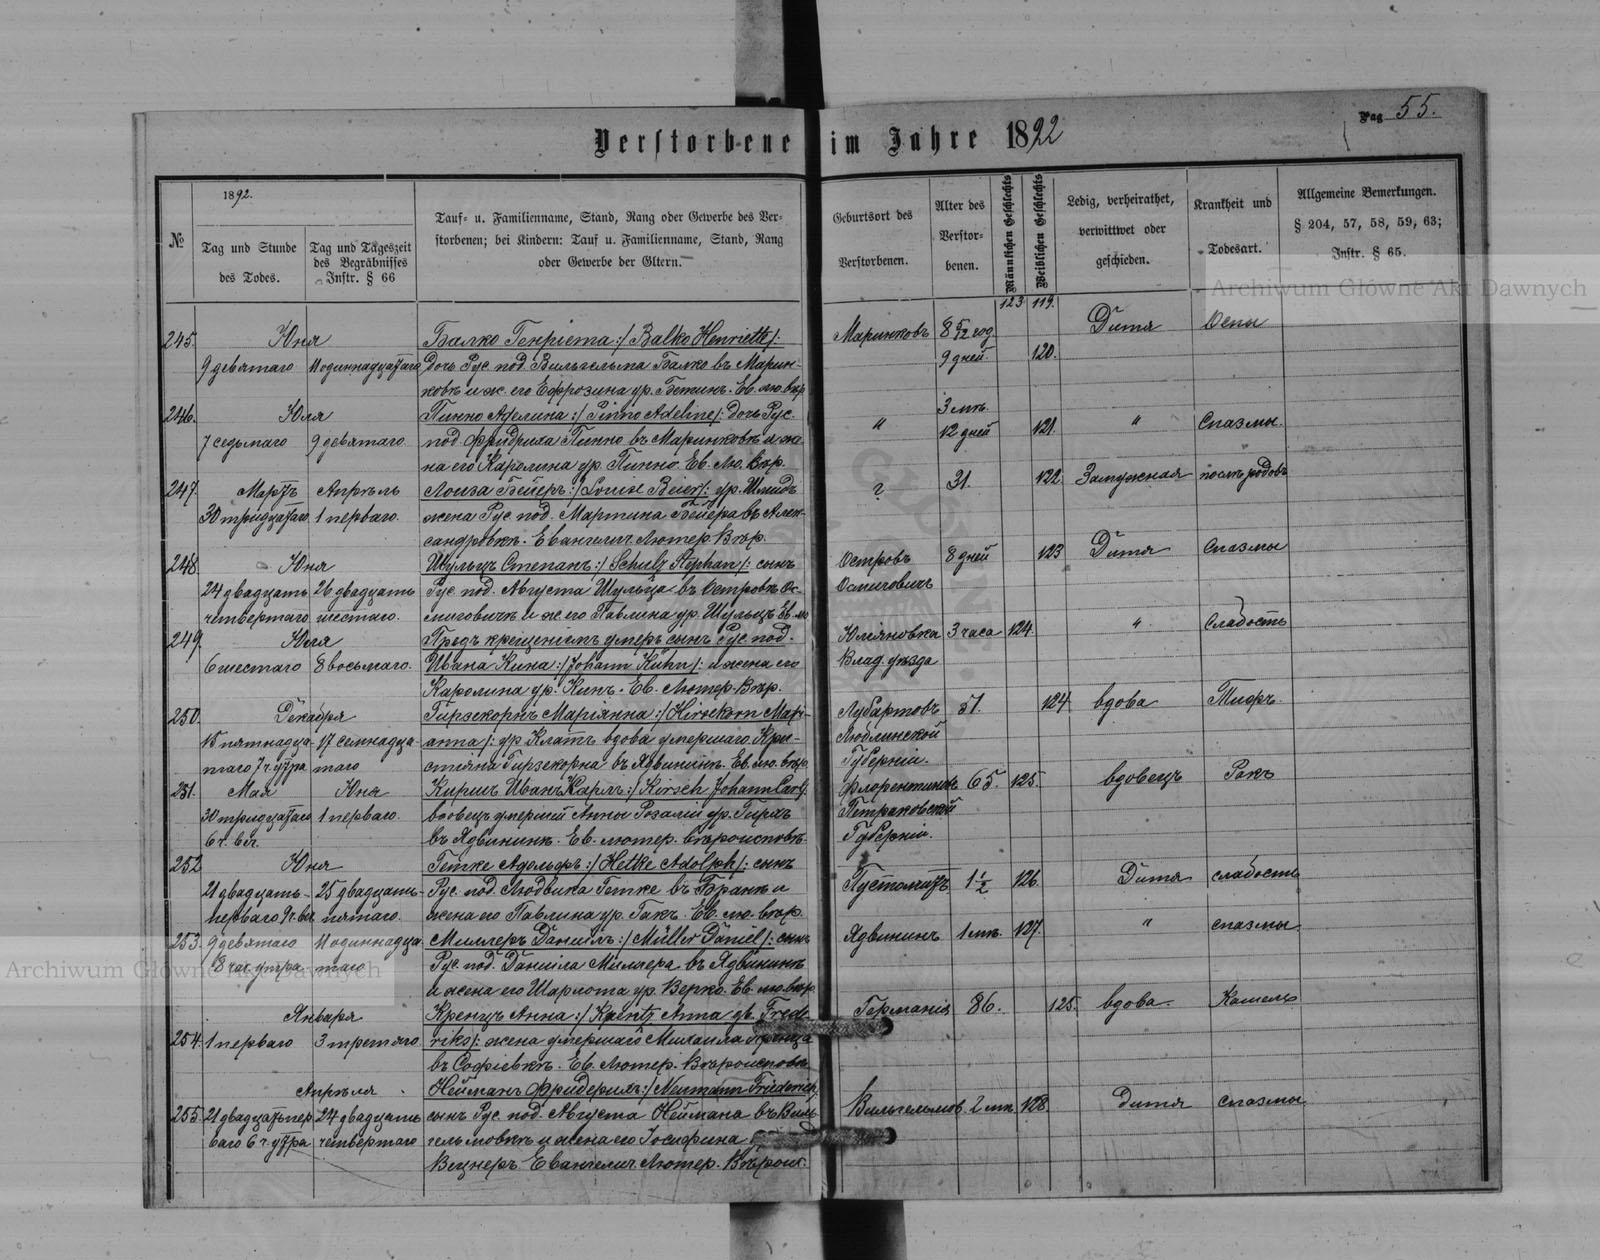 Pag 55.
Verstorbene im Jahre 1892
№
1892.
Tag und Stunde des Todes.
Tag und Tageszeit des Begräbnisses Instr. § 66
Tauf- u. Familienname, Stand, Rang oder Gewerbe des Ver-
storbenen; bei Kindern: Tauf u. Familienname, Stand, Rang
oder Gewerbe der Eltern.
Geburtsort des Verstorbenen.
Alter des Verstor- benen.
Männlichen Geschlechts
Weiblichen Geschlechts
Ledig, verheirathet, verwittwet oder geschieden.
Krankheit und Todesart.
Allgemeine Bemerkungen.
§ 204, 57, 58, 59, 63;
Instr. § 65.
Archiwum Główne Akt Dawnych
123 119.
245. Юня Балко Генріета :/ Balko Henriette /: Маринковъ 8 5/12 год Дитя Оспы
9 девятаго 11 одиннадцатаго Дочь Рус. под. Вильгельма Балко въ Марин- 9 дней 120.
ковкѣ и ж. его Ефрозина ур. Бетинъ. Ев. лю. вѣр.
246. Юля Пинно Аделина :/ Pinno Adeline /: дочь Рус. " 3 мѣс. " Спазмы.
7 седьмаго 9 девятаго. под. Фридриха Пинно въ Маринковкѣ и же- 12 дней 121.
на его Каролина ур. Пинно. Ев. Лю. Вѣр.
247. Мартъ Апрѣль Лоиза Бейеръ :/ Louise Beier /: ур. Шмидъ ? 31. 122. Замужная послѣ родовъ
30 тридцатаго 1 перваго. жена Рус. под. Мартина Бейера въ Алек-
сандровкѣ. Евангелич. Лютер. Вѣр.
248. Юня Шульцъ Степанъ :/ Schulz Stephan /: сынъ Островъ 8 дней 123 Дитя Спазмы
24 двадцать 26 двадцать Рус. под. Августа Шульца въ Островѣ Ос- Осмиговичъ
четвертаго шестаго. миговичѣ и ж. его Павлина ур. Шульцъ Ев. лю
249. Юля Предъ крещеніемъ умеръ сынъ Рус. под. Юліяновка 3 часа 124. " Слабость
6 шестаго 8 восьмаго. Ивана Кина :/ Johann Kühn /: и жена его Влад. уѣзда
Каролина ур. Кинъ. Ев. Лютер. Вѣр.
250. Декабря Гирзекорнъ Маріянна :/ Hirsekorn Mari- Лубартовъ 51. 124. вдова Тифъ.
15 пятнадца- 17 семнадца- anna /: ур. Клаттъ вдова умершаго Кри- Люблинской
таго 7 ч. утра таго стіяна Гирзекорна въ Ядвининѣ. Ев. лю. вѣр. Губерніи.
251. Мая Юня Киршъ Иванъ Карлъ :/ Kirsch Johann Carl /: Флорентиновъ 65. 125. вдовецъ Ракъ
30 тридцатаго 1 перваго. вдовецъ умершей Анны Розаліи ур. Петраковской
6 ч. веч. въ Ядвининѣ. Ев. лютер. вѣроисповѣ. Губерніи.
252 Юня Гетке Адольфъ :/ Hetke Adolph /: сынъ Пустомытъ 1 1/2 126. Дитя слабость
21 двадцать- 25 двадцать- Рус. под. Людвика Гетке въ и
перваго ч. веч. пятаго. жена его Павлина ур. Гакъ. Ев. лю. вѣр.
253. 9 девятаго 11 одиннадца Миллеръ Даніилъ :/ Müller Daniel /: сынъ Ядвининъ 1 мѣс. 127. " спазмы
8 час. утра таго Рус. под. Даніила Миллера въ Ядвининѣ
и жена его Шарлота ур. Верко. Ев. лю. вѣр.
Archiwum Główne Akt Dawnych
Января Кренцъ Анна :/ Krentz Anna Frede- Германія 86. 125. вдова. Кашель
254. 1 перваго 3 третяго riko /: жена умершаго Михаила Кренца
въ Софіевкѣ. Ев. Лютер. Вѣроисповѣ.
Апрѣля Нейманъ Фридерихъ :/ Neumann Friederich
255. 21 двадцать пер 24 двадцать сынъ Рус. под. Августа Неймана въ Виль- Вильгельмов. 2 мѣс. 128. дитя спазмы
ваго 6 ч. утра четвертаго гельмовкѣ и жена его Іосифина
Вецнеръ. Евангелич. Лютер. Вѣроис.